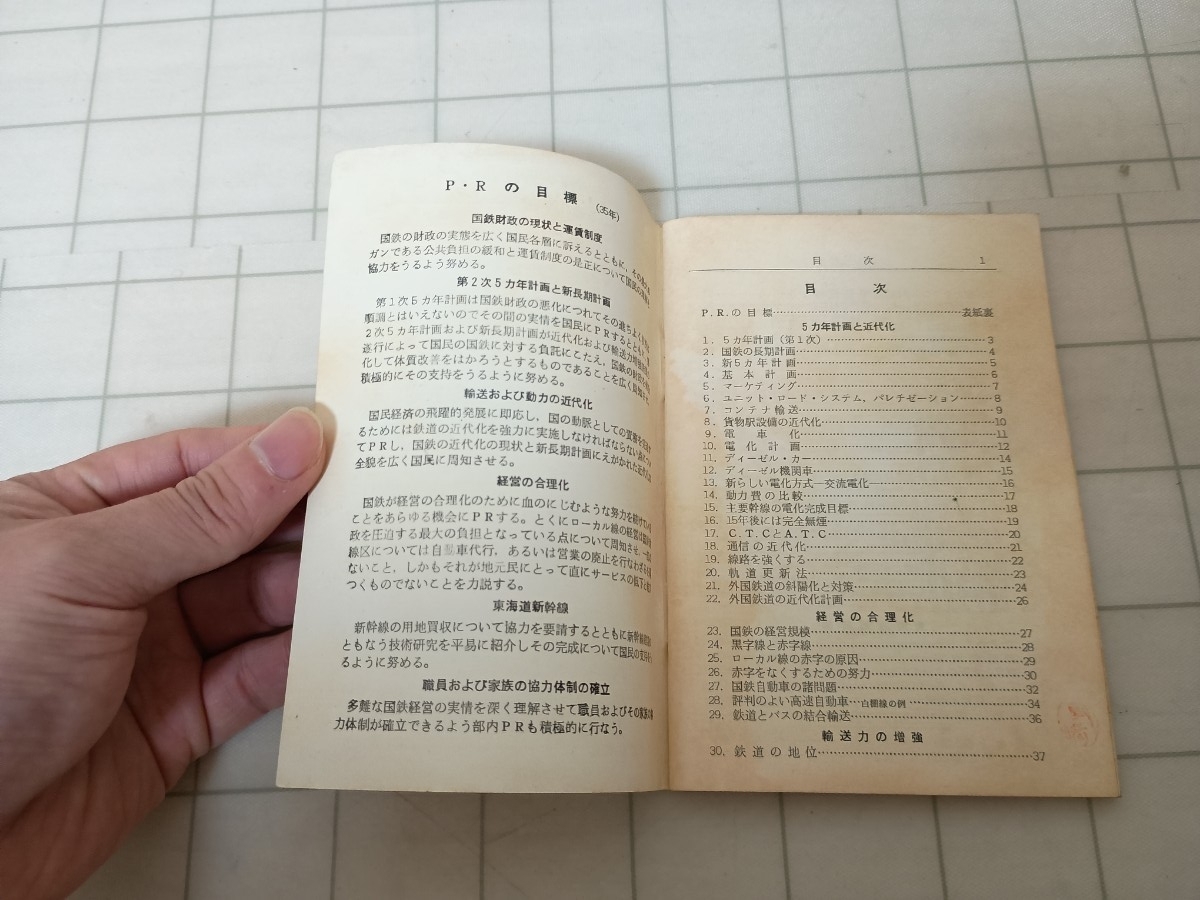 P・Rの目標 (35年)
国鉄財政の現状と運賃制度
国鉄の財政の実態を広く国民各層に訴えるとともに、
ガンである公共負担の緩和と運賃制度の是正について国民の
協力をうるよう努める。
第2次5カ年計画と新長期計画
第1次5カ年計画は国鉄財政の悪化につれてその進ちょく
順調とはいえないのでその間の実情を国民にPRするとともに、
2次5カ年計画および新長期計画が近代化および輸送力増強
遂行によって国民の国鉄に対する負託にこたえ、国鉄の
化して体質改善をはかろうとするものであることを広く
積極的にその支持をうるように努める。
輸送および動力の近代化
国民経済の飛躍的発展に即応し、国の動脈としての
るためには鉄道の近代化を強力に実施しなければならない
てPRし、国鉄の近代化の現状と新長期計画にえがかれた
全貌を広く国民に周知させる。
経営の合理化
国鉄が経営の合理化のために血のにじむような努力を続けて
ことをあらゆる機会にPRする。とくにローカル線の経営
政を圧迫する最大の負担となっている点について周知させ、
線区については自動車代行、あるいは営業の廃止を行なわざる
ないこと、しかもそれが地元民にとって直にサービスの低下と
つくものでないことを力説する。
東海道新幹線
新幹線の用地買収について協力を要請するとともに新幹線
ともなう技術研究を平易に紹介しその完成について国民の支持
るように努める。
職員および家族の協力体制の確立
多難な国鉄経営の実情を深く理解させて職員およびその家族の
力体制が確立できるよう部内PRも積極的に行なう。
目次 1
目次
P.R.の目標……表紙裏
5カ年計画と近代化
1. 5カ年計画(第1次)……3
2. 国鉄の長期計画……4
3. 新5カ年計画……5
4. 基本計画……6
5. マーケティング……7
6. ユニット・ロード・システム,パレチゼーション……8
7. コンテナ輸送……9
8. 貨物駅設備の近代化……10
9. 電車化……11
10. 電化計画……12
11. ディーゼル・カー……14
12. ディーゼル機関車……15
13. 新らしい電化方式―交流電化―……16
14. 動力費の比較……17
15. 主要幹線の電化完成目標……18
16. 15年後には完全無煙……19
17. C.T.CとA.T.C……20
18. 通信の近代化……21
19. 線路を強くする……22
20. 軌道更新法……23
21. 外国鉄道の斜陽化と対策……24
22. 外国鉄道の近代化計画……26
経営の合理化
23. 国鉄の経営規模……27
24. 黒字線と赤字線……28
25. ローカル線の赤字の原因……29
26. 赤字をなくするための努力……30
27. 国鉄自動車の諸問題……32
28. 評判のよい高速自動車―白棚線の例……34
29. 鉄道とバスの結合輸送……36
輸送力の増強
30. 鉄道の地位……37